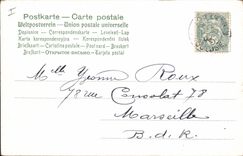 Postkarte - Carte postale
Weltpostverein - Union postale universelle
Dopisnice - Correspondenzkarte - Levelező-Lap
Karta korespondencyjna - Korespondenční lístek
Brefkort - Cartolina postale - Post card - Brevkort
Briefkaart - ОТКРЫТОЕ ПИСЬМО - Karta
Mlle Yvonne Roux
78 rue Consolat 78
Marseille
B.d.R.